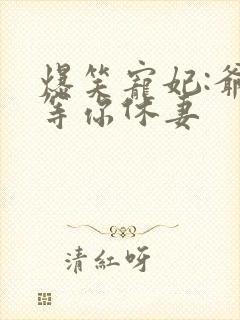 爆笑寵妃:爺
等你休妻
清紅呀